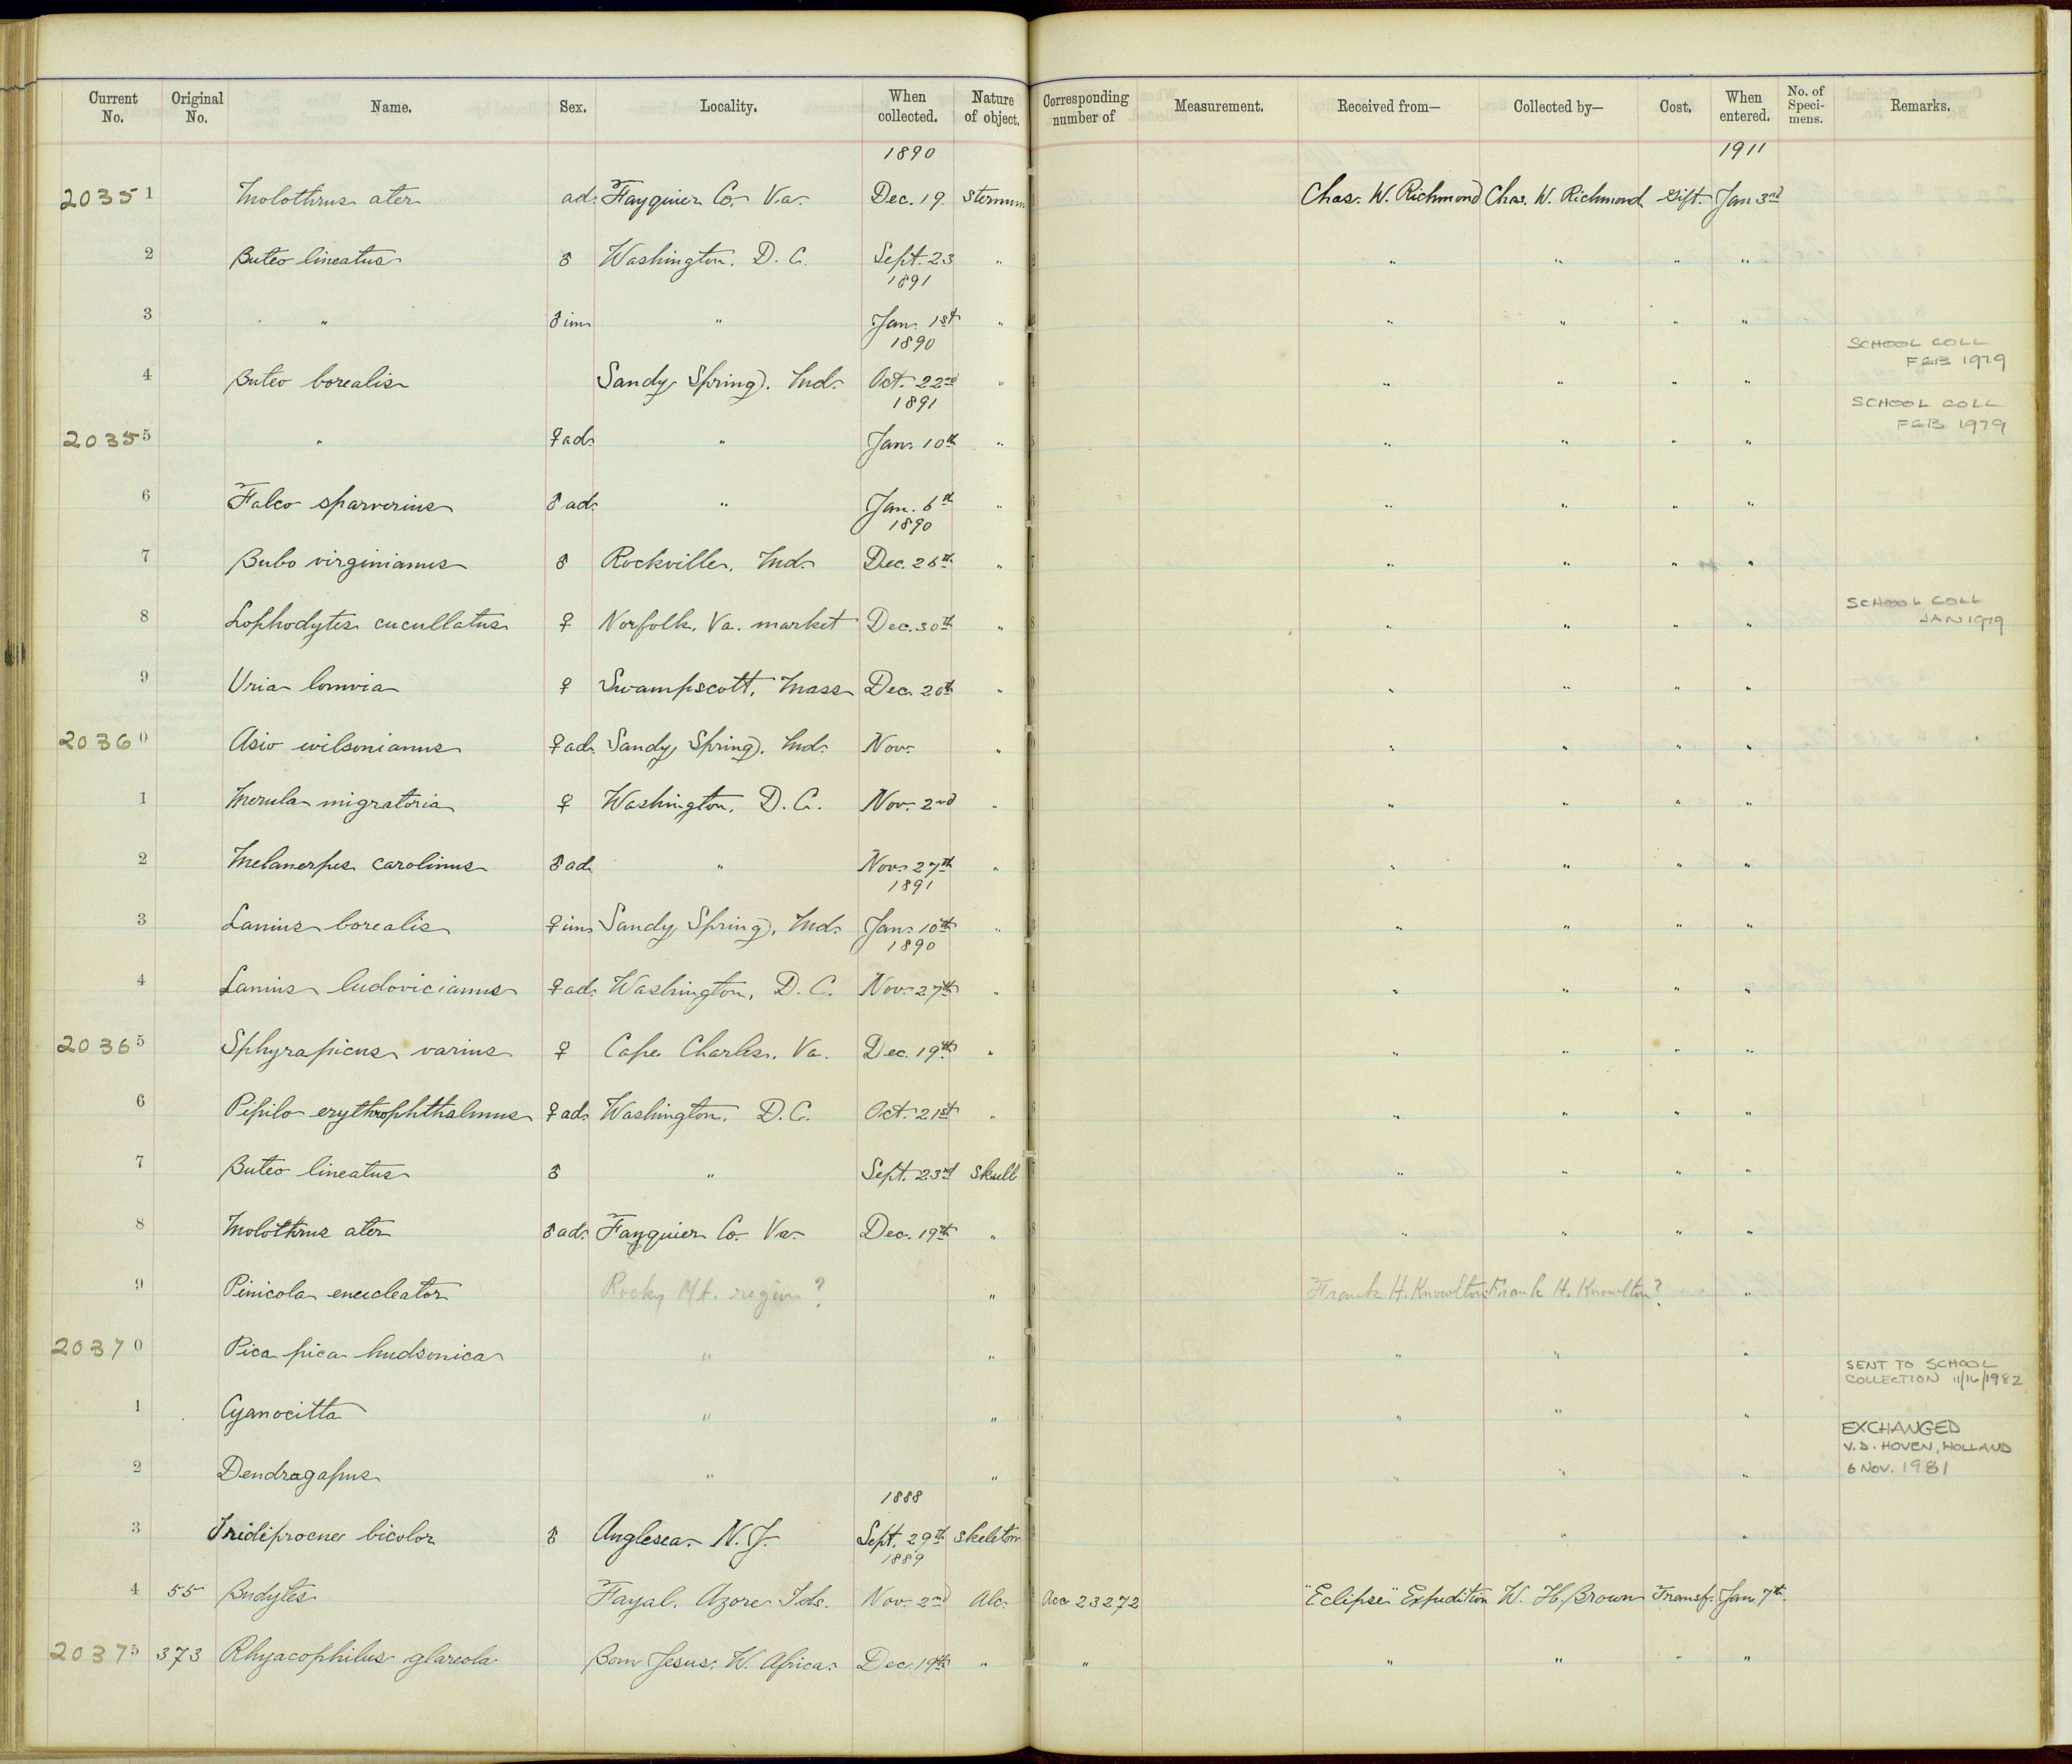 Current No. Original No. Name. Sex. Locality. When collected. Nature of object. Corresponding number of Measurement. Received from— Collected by— Cost. When entered. No. of Speci- mens. Remarks.
1890 1911
20351 Molothrus ater ad. Fayquier Co. Va. Dec. 19. Sternum Chas. W. Richmond Chas. W. Richmond Gift. Jan 3rd
2 Buteo lineatus ♂ Washington. D. C. Sept. 23 " " " " "
1891
3 " ♂ im " Jan. 1st " " " " "
1890 SCHOOL COLL FEB 1979
4 Buteo borealis Sandy Spring. Md. Oct. 22nd " " " " "
1891 SCHOOL COLL FEB 1979
20355 " ♀ ad. " Jan. 10th " " " " "
6 Falco sparverius ♂ ad. " Jan. 6th " " " " "
1890
7 Bubo virginianus ♂ Rockville, Md. Dec. 26th " " " " "
8 Lophodytes cucullatus ♀ Norfolk, Va. market Dec. 30th " " " " " SCHOOL COLL JAN 1979
9 Uria lomvia ♀ Swampscott, Mass Dec. 20th " " " " "
20360 Asio wilsonianus ♀ ad. Sandy Spring. Md. Nov. " " " " "
1 Merula migratoria ♀ Washington, D. C. Nov. 2nd " " " " "
2 Melanerpes carolinus ♂ ad. " Nov. 27th " " " " "
1891
3 Lanius borealis ♀ im Sandy Spring, Md. Jan. 10th " " " " "
1890
4 Lanius ludovicianus ♀ ad. Washington, D. C. Nov. 27th " " " " "
20365 Sphyrapicus varius ♀ Cape Charles. Va. Dec. 19th " " " " "
6 Pipilo erythrophthalmus ♀ ad. Washington. D. C. Oct. 21st " " " " "
7 Buteo lineatus ♂ " Sept. 23rd Skull " " " "
8 Molothrus ater ♂ ad. Fayquier Co. Va. Dec. 19th " " " " "
9 Pinicola enucleator Rocky Mt. region? " Frank H. Knowlton Frank H. Knowlton? "
20370 Pica pica hudsonica " " " " " SENT TO SCHOOL COLLECTION 11/16/1982
1 Cyanocitta " " " " "
2 Dendragapus " " " " " EXCHANGED V.D. HOVEN, HOLLAND 6 NOV. 1981
1888
3 Iridiprocne bicolor ♂ Anglesea. N. J. Sept. 29th Skeleton " " "
1889
4 55 Budytes Fayal. Azore Ids. Nov. 2nd Alc. Acc 23272 "Eclipse" Expedition W. H. Brown Transf. Jan 7th.
20375 373 Rhyacophilus glareola Bom Jesus. W. Africa. Dec. 19th " " " " " "